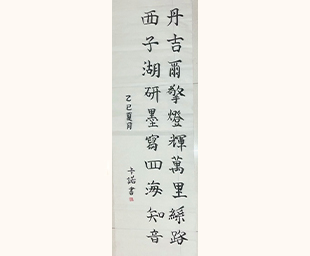 丹吉爾擎燈輝萬里絲路
西子湖研墨寫四海知音
乙巳夏月
卡諾書